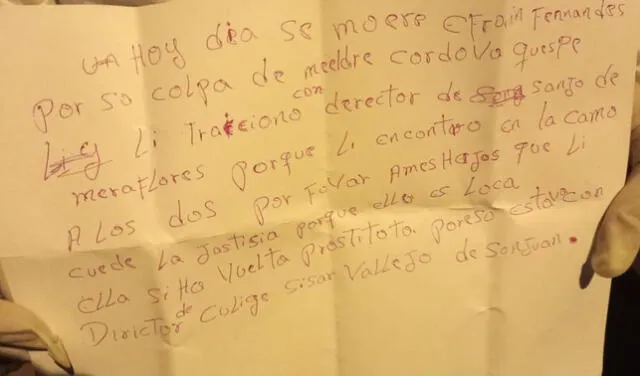 HOY día se moere Efrain Fernandes
Por so colpa de meeldre cordova quespe
Li Traiciono con derector de sanjo de
meraflores porque Li encontro en la camo
A Los dos por Favar Ames Hajos que Li
cuede La Jostisia porque ella es Loca
ella si Ho Vuelta Prostitoto. poreso estava con
Dirictor de Colige sisar Vallejo de sonjuan.